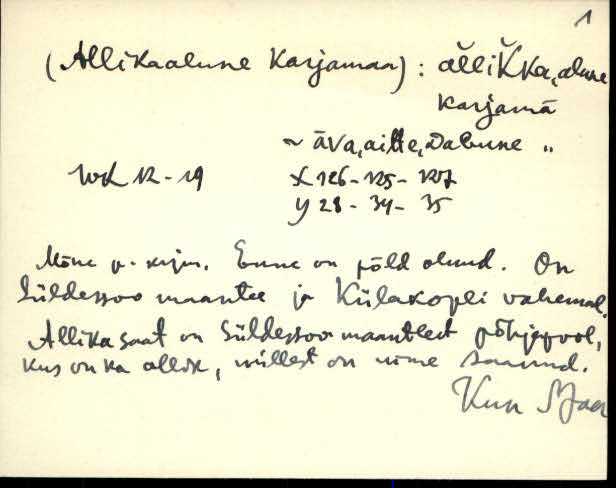 1
(Allikaalune Karjamaa) : ălliK̆ka, alune
karjamā
~ āva, aitte,        "
WK 12-19 X 126-125-127
Y 28-34-35
Mõne p. kirjas. Enne on põld olnud. On
Süldessoo maantee ja Külakopli vahemal.
Allika saat on Süldessoo maanteest põhjapool,
kus on ka allik, millest on nime saanud.
Kuu